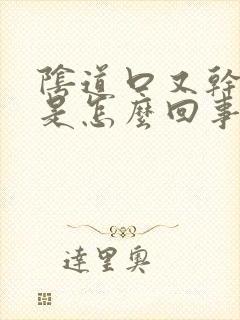 陰道口又幹
是怎麼回事
達里奧